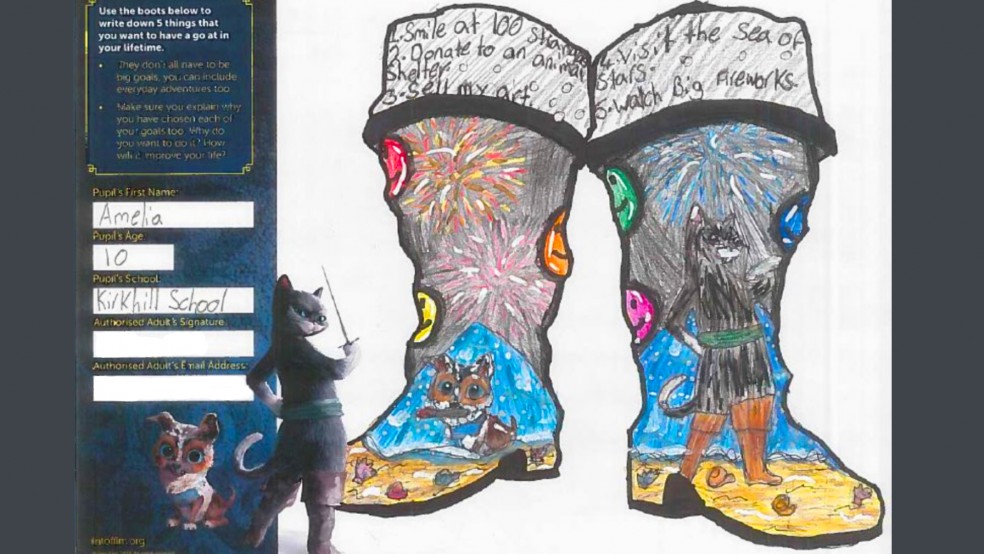 Use the boots below to
write down 5 things that
you want to have a go at in
your lifetime.
They don't all have to be
big goals, you can include
everyday adventures too
Make sure you explain why
you have chosen each of
your goals too. Why do
you want to do it? How
will it improve your life?
Pupil's First Name:
Amelia
Pupil's Age:
10
Pupil's School:
Kirkhill School
Authorised Adult's Signature
Authorised Adult's Email Address:
intofilm.org
1. Smile at 100
2. Donate to an animal
shelter.
3. Sell my art
4. visit the sea of
stars.
5. Watch Big Fireworks.